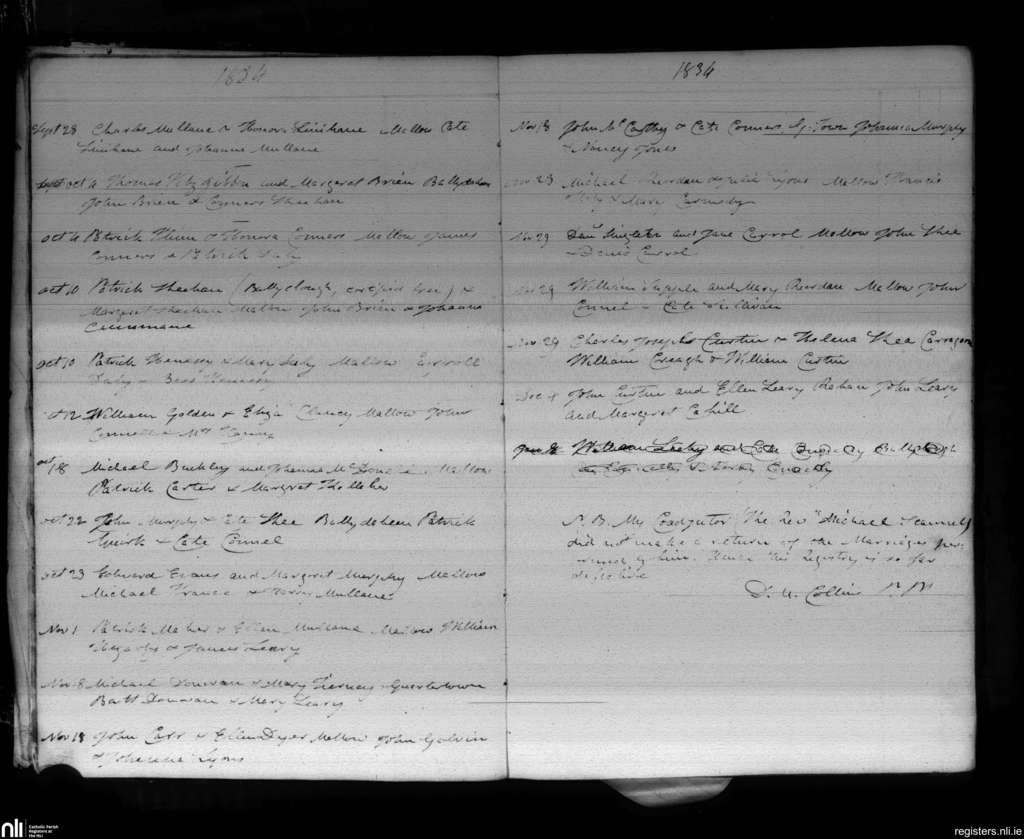 1834
Sept 28 Charles Mullane & Honora Linihane Mallow Cate
Linihane and Johanna Mullane
Oct 4 Thomas Fitzgibbon and Margaret Brien Ballydaheen
John Brien & Connors Sheehan
Oct 4 Patrick Flinn & Honora Connors Mallow James
Connors & Patrick Daly
Oct 10 Patrick Sheehan (Ballyclough, certified free) &
Margret Sheehan Mallow John Brien & Johanna
Oct 10 Patrick Henessy & Mary Daly Mallow
Daly & Bess Henessy
Oct 12 William Golden & Eliza Clancy Mallow John
Connell & Mrs
Oct 18 Michael Buckley and Johanna Mallow
Patrick Carter & Margret Kelleher
Oct 22 John Murphy & Cate Shea Ballydaheen Patrick
Quirk & Cate Connel
Oct 23 Edward Evans and Margret Murphy Mallow
Michael France & Mullane
Nov 1 Patrick Maher & Ellen Mullane Mallow William
Hegarty & James Leary
Nov 8 Michael Donovan & Mary Tierney Quartertown
Batt Donovan & Mary Leary
Nov 18 John Carr & Ellen Dyer Mallow John Galvin
& Johanna Lyons
1834
Nov 18 John McCarthy & Cate Connors Q. Town Johanna Murphy
& Nancy Jones
Nov 23 Michael Reordan & Julia Lyons Mallow Francis
& Mary
Nov 29 Danl and Jane Carrol Mallow John Shea
& Denis Carrol
Nov 29 William Supple and Mary Reordan Mallow John
Connel & Cate Sullivan
Nov 29 Charles Joseph Curtin & Helena Shea Carragoon
William Creagh & William Curtin
Dec 4 John Curtin and Ellen Leary Rahan John Leary
and Margaret Cahill
William Leahy and Cate
N.B. My Coadjutor The Revd Michael Scannell
did not make a return of the Marriages per
formed by him. Hence this Registry is so far
defective
D. M. Collins P.P.
nli Catholic Parish
Registers at
the NLI
registers.nli.ie